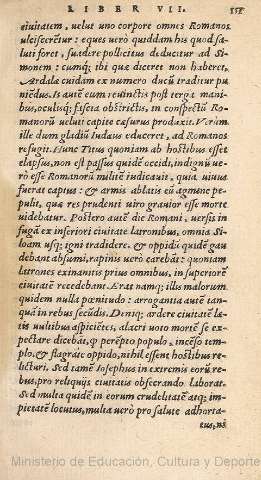 LIBER VII.
ciuitatem, uelut uno corpore omnes Romanos
ulcisceretur: eques uerò quiddam his quod sa-
luti foret, suadere pollicitus deducitur ad Si-
monem: cumq; ibi quæ diceret non haberet,
Ardalæ cuidam ex numero ducũ traditur pu
niẽdus. Is autẽ cum reuinctis post terga mani-
bus, oculisq; fascia obstrictis, in conspectũ Ro-
manorũ uelut capite cæsurus produxit. Verùm
ille dum gladiũ Iudæus educeret, ad Romanos
refugit. Hunc Titus quoniam ab hostibus esset
elapsus, non est passus quidẽ occidi, indignũ ue-
rò esse Romanorũ milite iudicauit, quia uiuus
fuerat captus: & armis ablatis eũ agmine pe-
pulit, quæ res prudenti uiro grauior esse morte
uidebatur. Postero autẽ die Romani, uersis in
fugã ex inferiori ciuitate latronibus, omnia Si-
loam usq; igni tradidere. & oppidũ quidẽ gau
debant absumi, rapinis uerò carebãt: quoniam
latrones exinanitis prius omnibus, in superiorẽ
ciuitatẽ recedebant. Erat namq; illis malorum
quidem nulla pœnitudo: arrogantia autẽ tan-
quã in rebus secũdis. Deniq; ardere ciuitatẽ læ-
tis uultibus aspiciẽtes, alacri uoto mortẽ se ex-
pectare dicebãt, q̃ perẽpto populo, incẽso tem-
plo, & flagrãte oppido, nihil essent hostibus re-
licturi. Sed tamẽ Iosephus in extremis eorũ re-
bus, pro reliquijs ciuitatis obsecrando laborat.
Sed multa quidẽ in eorum crudelitatẽ atq; im-
pietatẽ locutus, multa uerò pro salute adhorta-
Ministerio de Educación, Cultura y Deporte